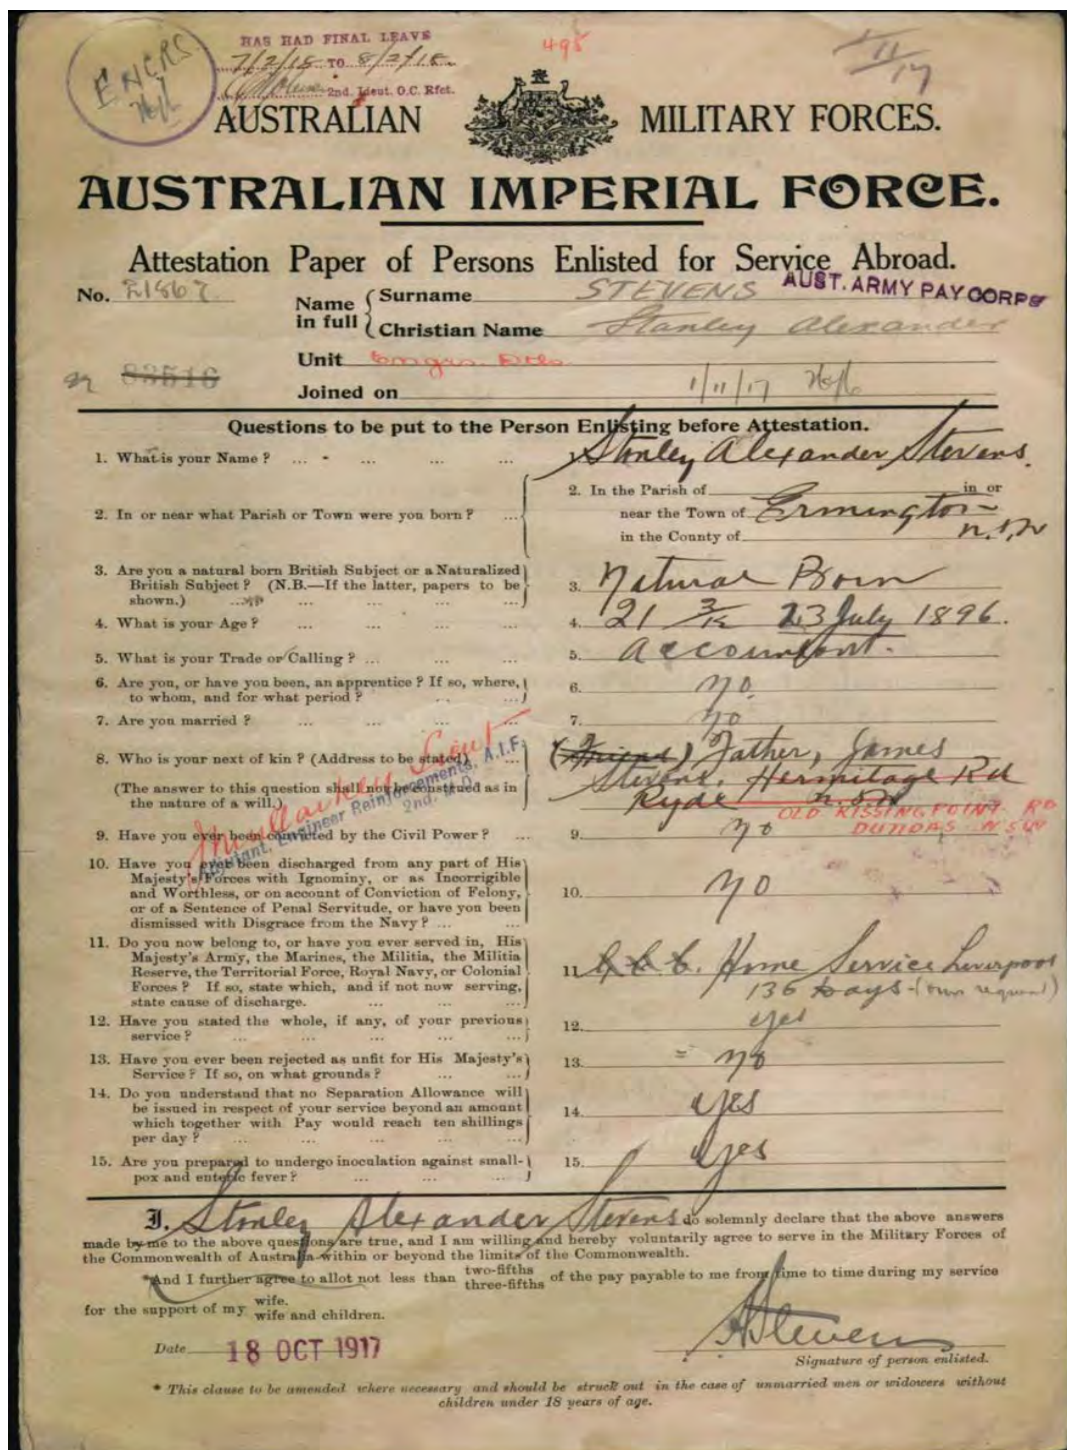 ENGRS
HAS HAD FINAL LEAVE
7/2/18 TO 8/2/18
2nd. Lieut. O.C. Rfct.
498
1/11/17
AUSTRALIAN MILITARY FORCES.
AUSTRALIAN IMPERIAL FORCE.
Attestation Paper of Persons Enlisted for Service Abroad.
No.
Name in full { Surname STEVENS
AUST. ARMY PAY CORPS
Christian Name Stanley Alexander
Unit Engrs.
83516
Joined on 1/11/17
Questions to be put to the Person Enlisting before Attestation.
1. What is your Name ? ... ... ... ... Stanley Alexander Stevens.
2. In or near what Parish or Town were you born ? ...
2. In the Parish of in or
near the Town of Ermington
in the County of N.S.W
3. Are you a natural born British Subject or a Naturalized
British Subject ? (N.B.—If the latter, papers to be
shown.) ... ... ... ...
3. Natural Born
4. What is your Age ? ... ... ... 4. 21 3/12 23 July 1896.
5. What is your Trade or Calling ? ... ... ... 5. accountant.
6. Are you, or have you been, an apprentice ? If so, where,
to whom, and for what period ? ... ...
6. no.
7. Are you married ? ... ... ... 7. no
8. Who is your next of kin ? (Address to be stated) ...
(The answer to this question shall not be construed as in
the nature of a will.)
(Friend) Father, James
Stevens. Hermitage Rd
Ryde N.S.W
OLD KISSING POINT RD
DUNDAS N SW
Lieut
Adjutant, Engineer Reinforcements, A.I.F.
2nd. M.D.
9. Have you ever been convicted by the Civil Power ? ... 9. no
10. Have you ever been discharged from any part of His
Majesty's Forces with Ignominy, or as Incorrigible
and Worthless, or on account of Conviction of Felony,
or of a Sentence of Penal Servitude, or have you been
dismissed with Disgrace from the Navy ? ... ...
10. NO
11. Do you now belong to, or have you ever served in, His
Majesty's Army, the Marines, the Militia, the Militia
Reserve, the Territorial Force, Royal Navy, or Colonial
Forces ? If so, state which, and if not now serving,
state cause of discharge. ... ... ...
11. Home Service Liverpool
136 Days - (own request)
12. Have you stated the whole, if any, of your previous
service ? ... ... ... ...
12. yes
13. Have you ever been rejected as unfit for His Majesty's
Service ? If so, on what grounds ? ... ...
13. = no
14. Do you understand that no Separation Allowance will
be issued in respect of your service beyond an amount
which together with Pay would reach ten shillings
per day ? ... ... ... ...
14. yes
15. Are you prepared to undergo inoculation against small-
pox and enteric fever ? ... ... ...
15. yes
I, Stanley Alexander Stevens do solemnly declare that the above answers
made by me to the above questions are true, and I am willing and hereby voluntarily agree to serve in the Military Forces of
the Commonwealth of Australia within or beyond the limits of the Commonwealth.
*And I further agree to allot not less than two-fifths three-fifths of the pay payable to me from time to time during my service
for the support of my wife. wife and children.
Date 18 OCT 1917
SAStevens
Signature of person enlisted.
* This clause to be amended where necessary and should be struck out in the case of unmarried men or widowers without
children under 18 years of age.